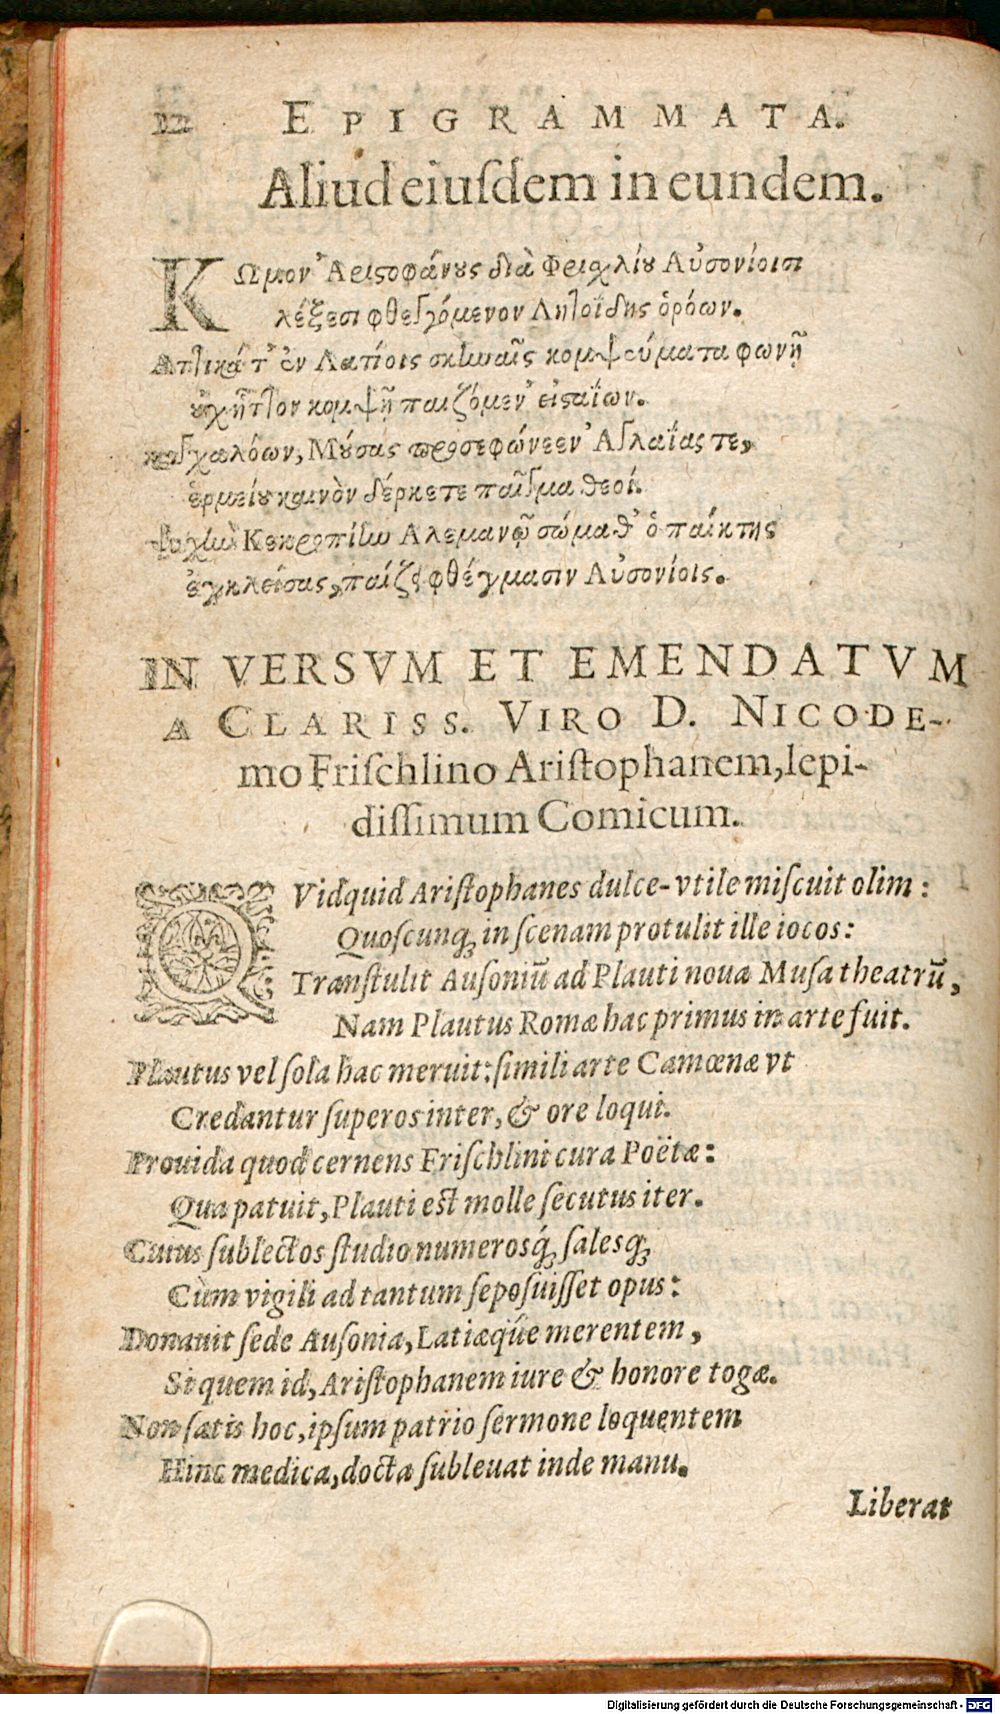 12 EPIGRAMMATA.
Aliud eiuſdem in eundem.
ΚΩμον Ἀριστοφάνους διὰ Φριχλίου Αὐσονίοισι
λέξεσι φθεγγόμενον Λητοΐδης ὁρόων.
Ἀττικά τ' ἐν Λατίοις σκηναῖς κομψεύματα φωνῇ
οὐχ ἧττον κομψῇ παιζόμεν' εἰσαΐων.
καγχαλόων, Μούσας προσεφώνεεν Ἀγλαΐας τε,
ἑρμείου καινὸν δέρκετε παῖγμα θεοί.
ψυχὴν Κεκροπίην Αλεμανῷ σώμαθ' ὁ παίκτης
ἐγκλείσας, παίζει φθέγμασιν Αὐσονίοις.
IN VERSVM ET EMENDATVM
A CLARISS. VIRO D. NICODE-
mo Friſchlino Ariſtophanem, lepi-
diſſimum Comicum.
QVidquid Ariſtophanes dulce-vtile miſcuit olim:
Quoſcunq; in ſcenam protulit ille iocos:
Tranſtulit Auſoniũ ad Plauti noua Muſa theatrũ,
Nam Plautus Romæ hac primus in arte fuit.
Plautus vel ſola hac meruit: ſimili arte Camœnæ vt
Credantur ſuperos inter, & ore loqui.
Prouida quod cernens Friſchlini cura Poëtæ:
Qua patuit, Plauti eſt molle ſecutus iter.
Cuius ſublectos ſtudio numerosq́; ſalesq;
Cùm vigili ad tantum ſepoſuiſſet opus:
Donauit ſede Auſonia, Latiæq́ue merentem,
Si quem id, Ariſtophanem iure & honore togæ.
Non ſatis hoc, ipſum patrio ſermone loquentem
Hinc medica, docta ſubleuat inde manu.
Liberat
Digitalisierung gefördert durch die Deutsche Forschungsgemeinschaft - DFG